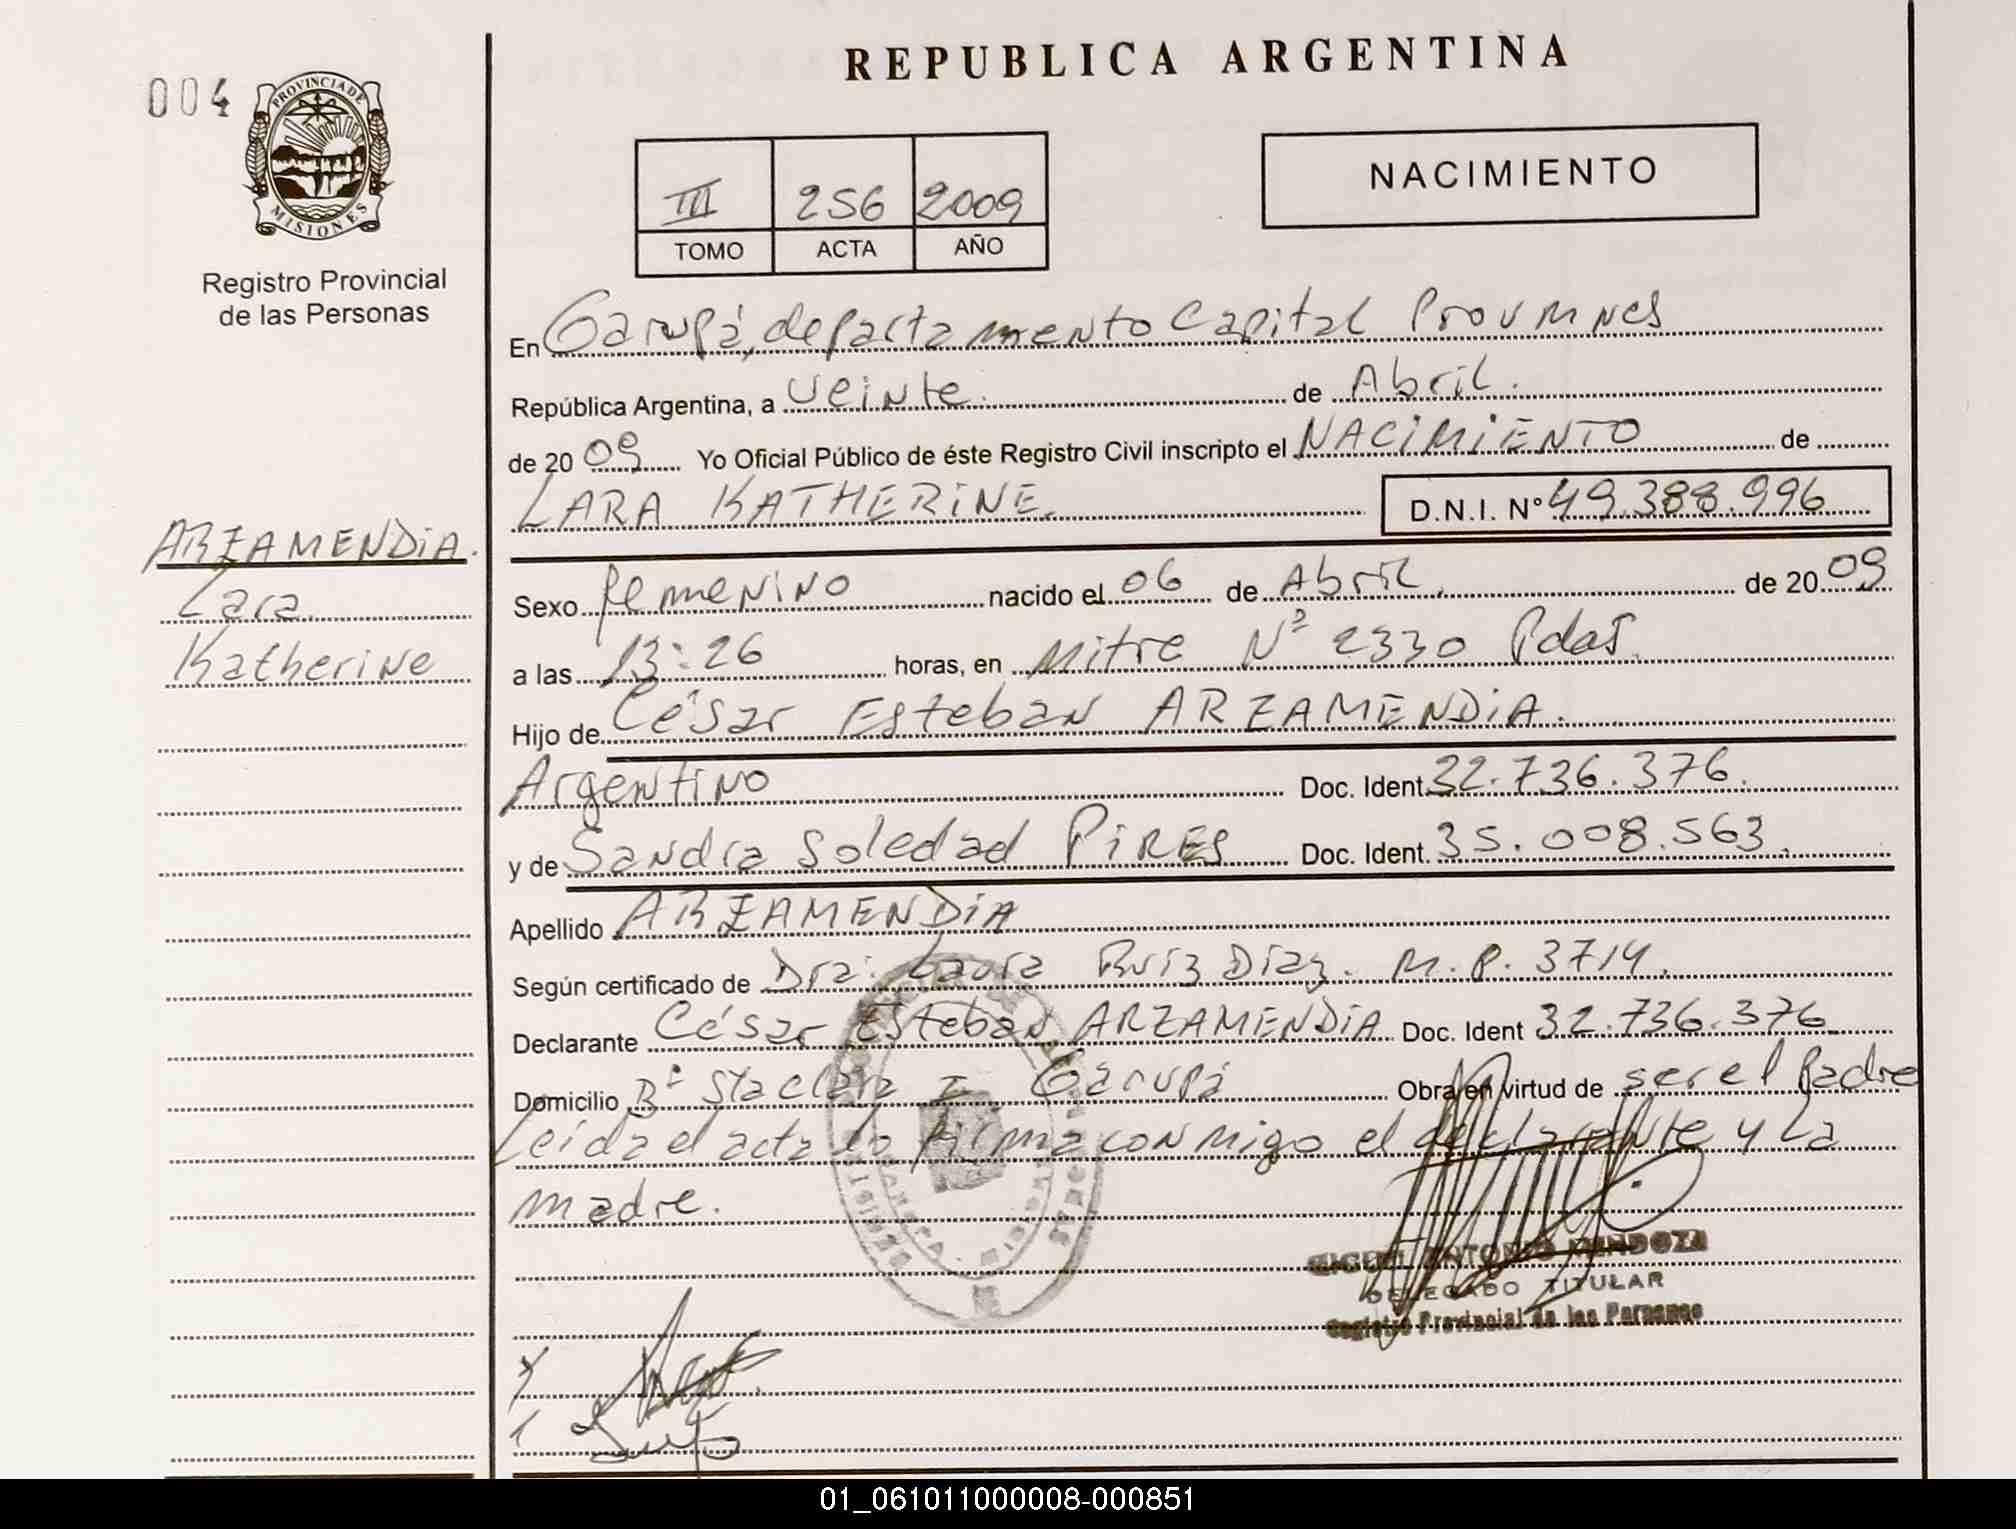 004
PROVINCIA DE
MISIONES
Registro Provincial
de las Personas
ARZAMENDIA.
Lara
Katherine
REPUBLICA ARGENTINA
III 256 2009
TOMO ACTA AÑO
NACIMIENTO
En Garupá, departamento Capital Prov Mnes
República Argentina, a veinte. de Abril.
de 2009 Yo Oficial Público de éste Registro Civil inscripto el NACIMIENTO de
LARA KATHERINE. D.N.I. Nº 49.388.996
Sexo femenino nacido el 06 de Abril. de 2009
a las 13:26 horas, en Mitre Nº 2330 Pdas.
Hijo de César Esteban ARZAMENDIA.
Argentino Doc. Ident. 32.736.376.
y de Sandra Soledad PIRES Doc. Ident. 35.008.563.
Apellido ARZAMENDIA
Según certificado de Dra. Laura Ruiz Diaz. M.P. 3714.
Declarante César Esteban ARZAMENDIA Doc. Ident 32.736.376
Domicilio Bº Sta Clara I Garupá Obra en virtud de ser el Padre
Leida el acta la firma conmigo el declarante y La
madre.
MIGUEL ANTONIO MENDOZA
DELEGADO TITULAR
Registro Provincial de las Personas
01_061011000008-000851